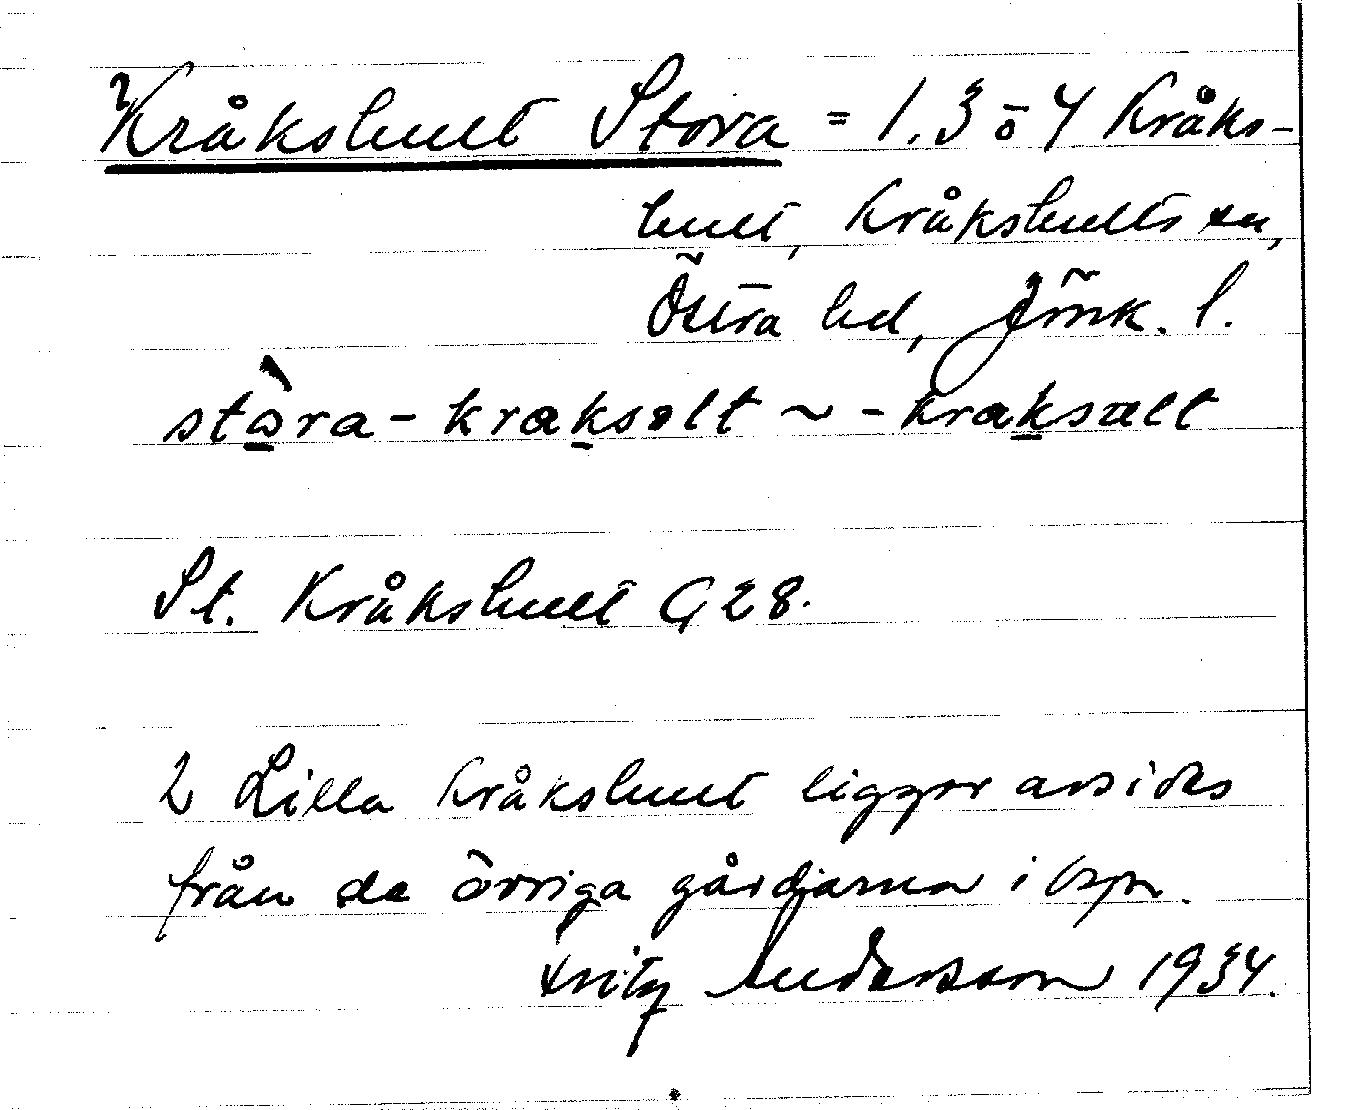 Kråkshult Stora = 1.3 o 4 Kråks-
hult, Kråkshults sn,
Östra hd, Jönk. l.
stora- kraksolt ~ -kraksœlt
St. Kråkshult G 28.
2 Lilla Kråkshult ligger avsides
från de övriga gårdarna i byn.
Fritz Andersson 1934.